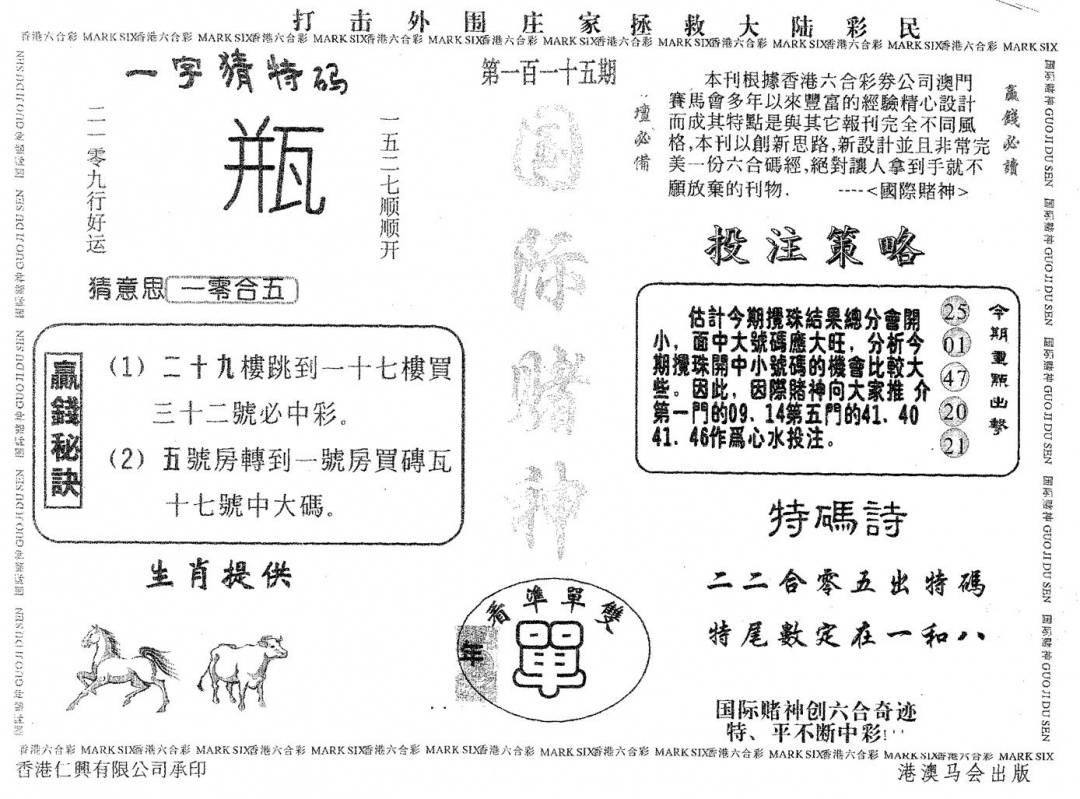 打击外围庄家拯救大陆彩民
香港六合彩 MARK SIX香港六合彩 MARK SIX香港六合彩 MARK SIX香港六合彩 MARK SIX香港六合彩 MARK SIX香港六合彩 MARK SIX香港六合彩 MARK SIX香港六合彩 MARK SIX香港六合彩 MARK SIX
一字猜特码
二一零九行好运
瓶
一五二七顺顺开
猜意思 一零合五
赢錢秘訣
(1) 二十九樓跳到一十七樓買
三十二號必中彩。
(2) 五號房轉到一號房買磚瓦
十七號中大碼。
生肖提供
第一百一十五期
国际赌神
看準單雙
單
年
壇必備
本刊根據香港六合彩券公司澳門
賽馬會多年以來豐富的經驗精心設計
而成其特點是與其它報刊完全不同風
格,本刊以創新思路,新設計並且非常完
美一份六合碼經,絕對讓人拿到手就不
願放棄的刊物. ----<國際賭神>
贏錢必讀
投注策略
估計今期攪珠結果總分會開
小，面中大號碼應大旺，分析今
期攪珠開中小號碼的機會比較大
些。因此，因際賭神向大家推 介
第一門的09、14第五門的41、40
41、46作爲心水投注。
25
01
47
20
21
今期重點出擊
特碼詩
二二合零五出特碼
特尾數定在一和八
国际赌神创六合奇迹
特、平不断中彩!
国际赌神 GUO JI DU SEN 国际赌神 GUO JI DU SEN 国际赌神 GUO JI DU SEN 国际赌神 GUO JI DU SEN 国际赌神 GUO JI DU SEN
香港六合彩 MARK SIX香港六合彩 MARK SIX香港六合彩 MARK SIX香港六合彩 MARK SIX香港六合彩 MARK SIX香港六合彩 MARK SIX香港六合彩 MARK SIX香港六合彩 MARK SIX香港六合彩 MARK SIX
香港仁興有限公司承印
港澳马会出版